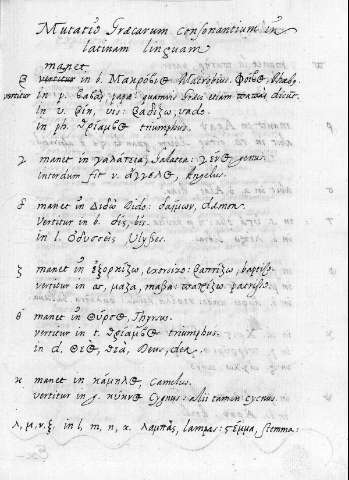 Mutatio Græcarum consonantium in
latinam linguam
manet
β vertitur in b. Μακρόβιος Macrobius. Φοῖβος, Phœbo
vertitur in p. papa: quamvis Græci etiam πάπας dicunt.
in v. βία, vis: βαδίζω, vado.
in ph. θρίαμβος triumphus.
γ manet in γαλάτεια, Galatea: γένος genus.
interdum fit n. ἄγγελος, Angelus.
δ manet in Διδὼ Dido: δαίμων, dæmon.
Vertitur in b. δὶς, bis.
in l. Οδυσσεὺς Ulysses.
ζ manet in ἐξορκίζω, exorcizo: βαπτίζω, baptizo.
vertitur in ss, μάζα, massa:
θ manet in θύρσος, Thyrsus.
vertitur in t. θρίαμβος triumphus.
in d. θεὸς, θεὰ, Deus, dea.
κ manet in κάμηλος, Camelus.
vertitur in g. κύκνος Cygnus: aliis tamen cycnus.
λ, μ, ν, ξ, in l, m, n, x. λαμπὰς, lampas: στέμμα, stemma: